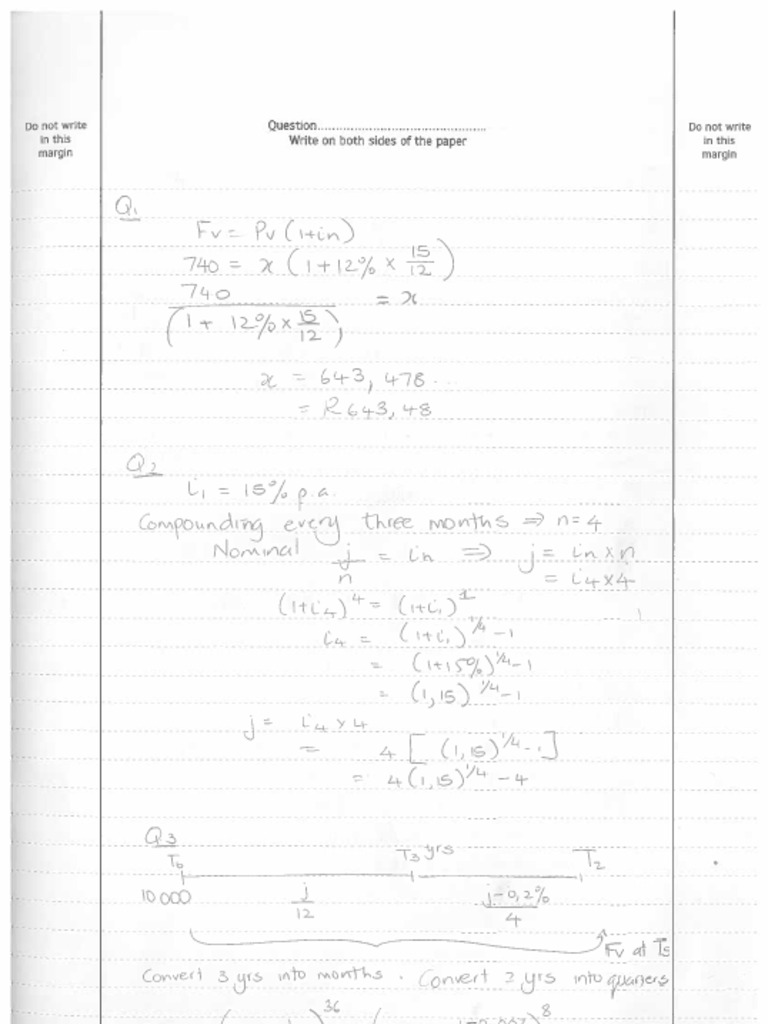 Do not write
in this
margin
Question
Write on both sides of the paper
Do not write
in this
margin
Q1
Fv = Pv (1+in)
740 = x (1 + 12% × 15/12)
740 / (1 + 12% × 15/12) = x
x = 643,478..
= R643,48
Q2
i1 = 15% p.a.
Compounding every three months ⇒ n=4
Nominal j/n = in ⇒ j = in × n
= i4 × 4
(1+i4)^4 = (1+i1)^1
i4 = (1+i1)^1/4 - 1
= (1+15%)^1/4 - 1
= (1,15)^1/4 - 1
j = i4 × 4
= 4 [(1,15)^1/4 - 1]
= 4(1,15)^1/4 - 4
Q3
T0 T3 yrs T2
10 000 j/12 j-0,2%/4
Fv at T5
Convert 3 yrs into months. Convert 2 yrs into quarters
36 8